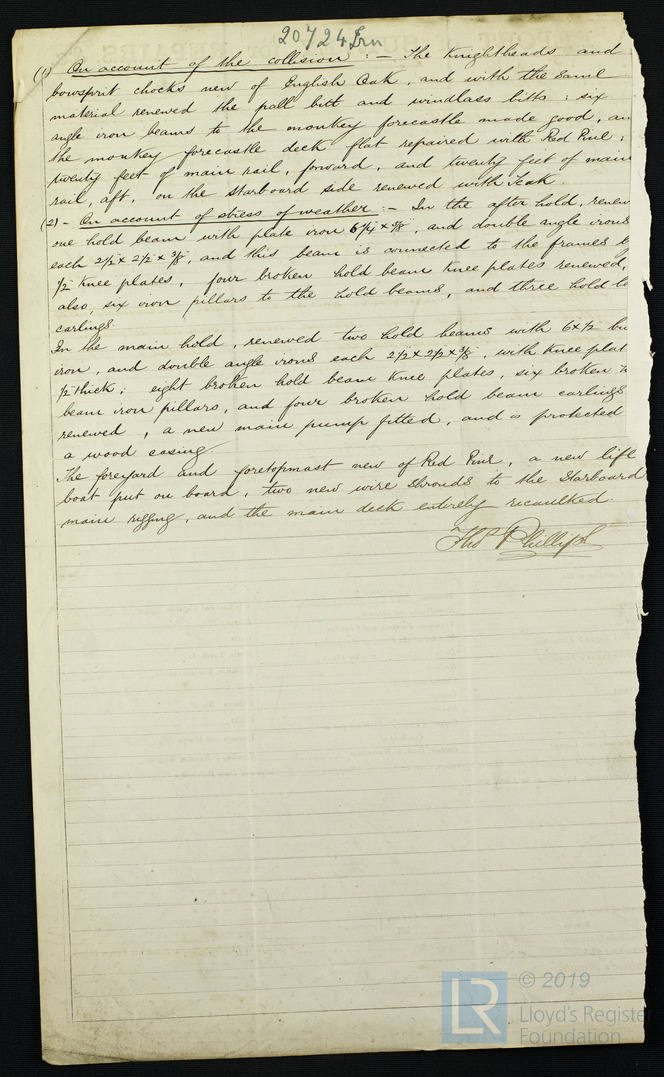 20724 Irn
(1) On account of the collision :- The Knightheads and
bowsprit chocks new of English Oak, and with the same
material renewed the pall bitt and windlass bitts : six
angle iron beams to the monkey forecastle made good, an
the monkey forecastle deck flat repaired with Red Pine ;
twenty feet of main rail, forward, and twenty feet of main
rail, aft, on the starboard side renewed with Teak.
(2) - On account of stress of weather :- In the after hold, renew
one hold beam with plate iron 6¼ x ⅜, and double angle irons
each 2½ x 2½ x ⅜, and this beam is connected to the frames b
½ Knee plates, four broken hold beam Knee plates renewed,
also, six iron pillars to the hold beams, and three hold be
carlings.
In the main hold, renewed two hold beams with 6 x ½ bu
iron, and double angle irons each 2½ x 2½ x ⅜, with Knee plat
½ thick ; eight broken hold beam Knee plates, six broken h
beam iron pillars, and four broken hold beam carlings
renewed, a new main pump fitted, and is protected
a wood casing.
The foreyard and foretopmast new of Red Pine, a new life
boat put on board, two new wire shrouds to the Starboard
main rigging, and the main deck entirely recaulked.
Thos Phillips
© 2019
LR
Lloyd's Register
Foundation